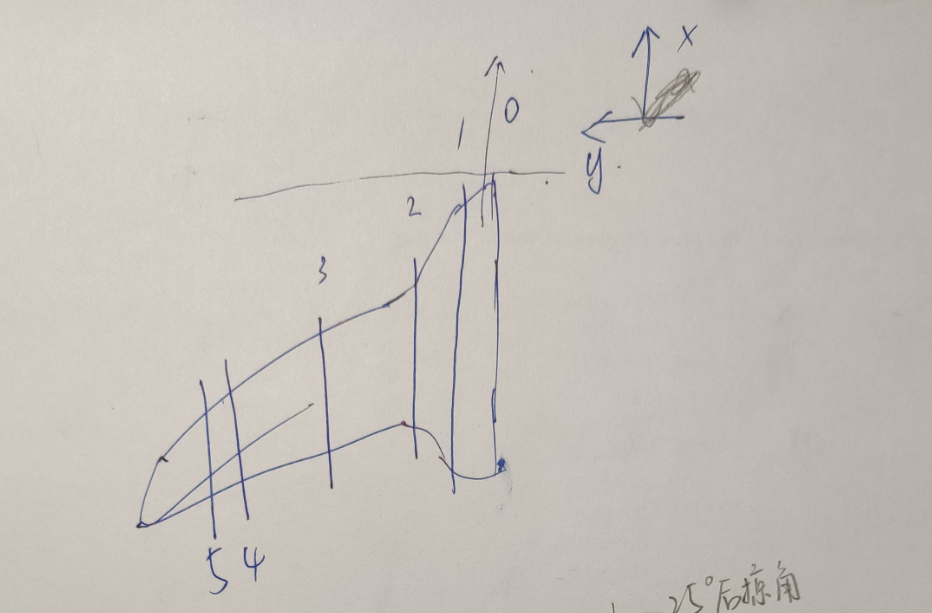 x
0
1
y.
2
3
5 4
25°后掠角